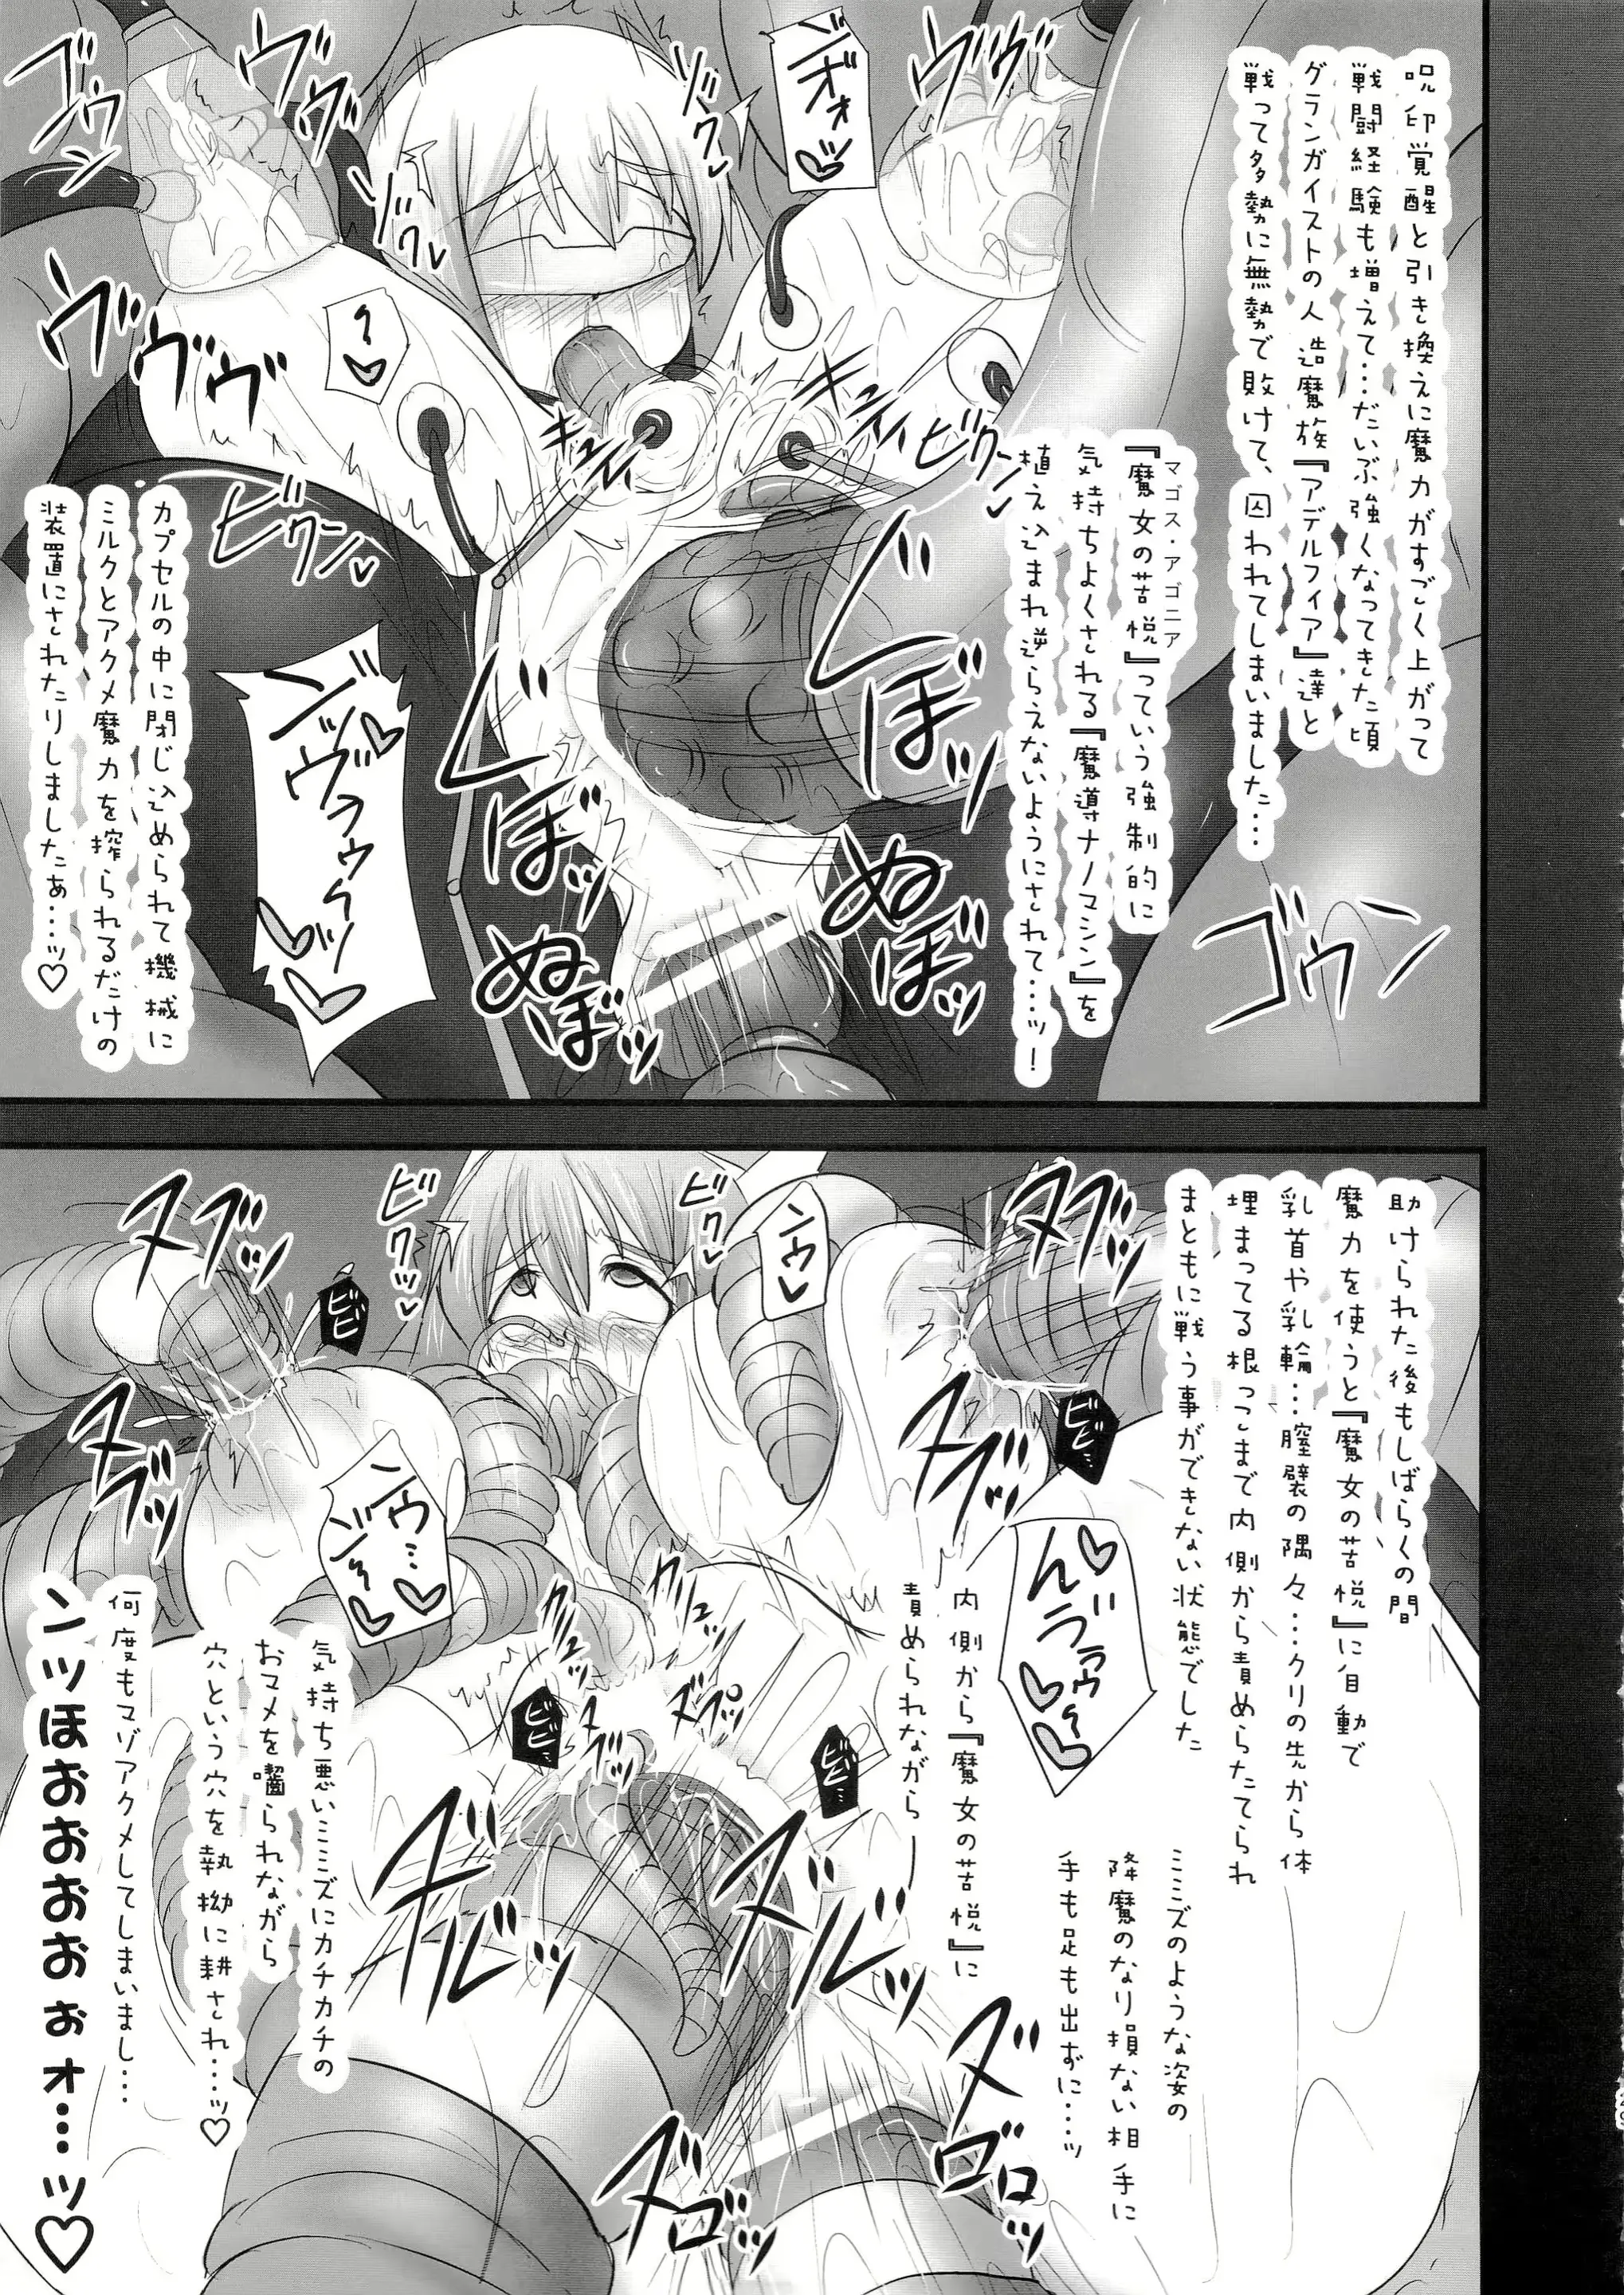 呪印覚醒と引き換えに魔力がすごく上がって
戦闘経験も増えて…だいぶ強くなってきた頃
グランガイストの人造魔族『アデルフィア』達と
戦って多勢に無勢で敗けて、囚われてしまいました…
マゴス・アゴニア
『魔女の苦悦』っていう強制的に
気持ちよくされる『魔導ナノマシン』を
植え込まれ逆らえないようにされて…ッ！
カプセルの中に閉じ込められて機械に
ミルクとアクメ魔力を搾られるだけの
装置にされたりしましたぁ…ッ♡
ゴウン
ヴヴ
ゾクッ
ゾクッ
ヴヴ
ヴヴヴ
ゴウン
キュイィ
キュイィ
ビクンッ
ビクンッ
じぼッ
じぼッ
ぬぼッ
ぬぼッ
助けられた後もしばらくの間
魔力を使うと『魔女の苦悦』に自動で
乳首や乳輪…膣襞の隅々…クリの先から体
埋まってる根っこまで内側から責めらたてられ
まともに戦う事ができない状態でした
ミミズのような姿の
降魔のなり損ない相手に
手も足も出ずに…ッ
内側から『魔女の苦悦』に
責められながら―
気持ち悪いミミズにカチカチの
おマメを嚙られながら
穴という穴を執拗に耕され…ッ♡
何度もマゾアクメしてしまいまし…
ンッほおおおおぉォ…ッ♡
ヌブッ
ヌブッ
ヌブッ
ヌブッ
ビクッ
ビクッ
ビビ
ビビ…
ビビ…
ビビ…
ンゥ
ズルルッ
ズルルッ
ズゴッ
ズゴゴッ